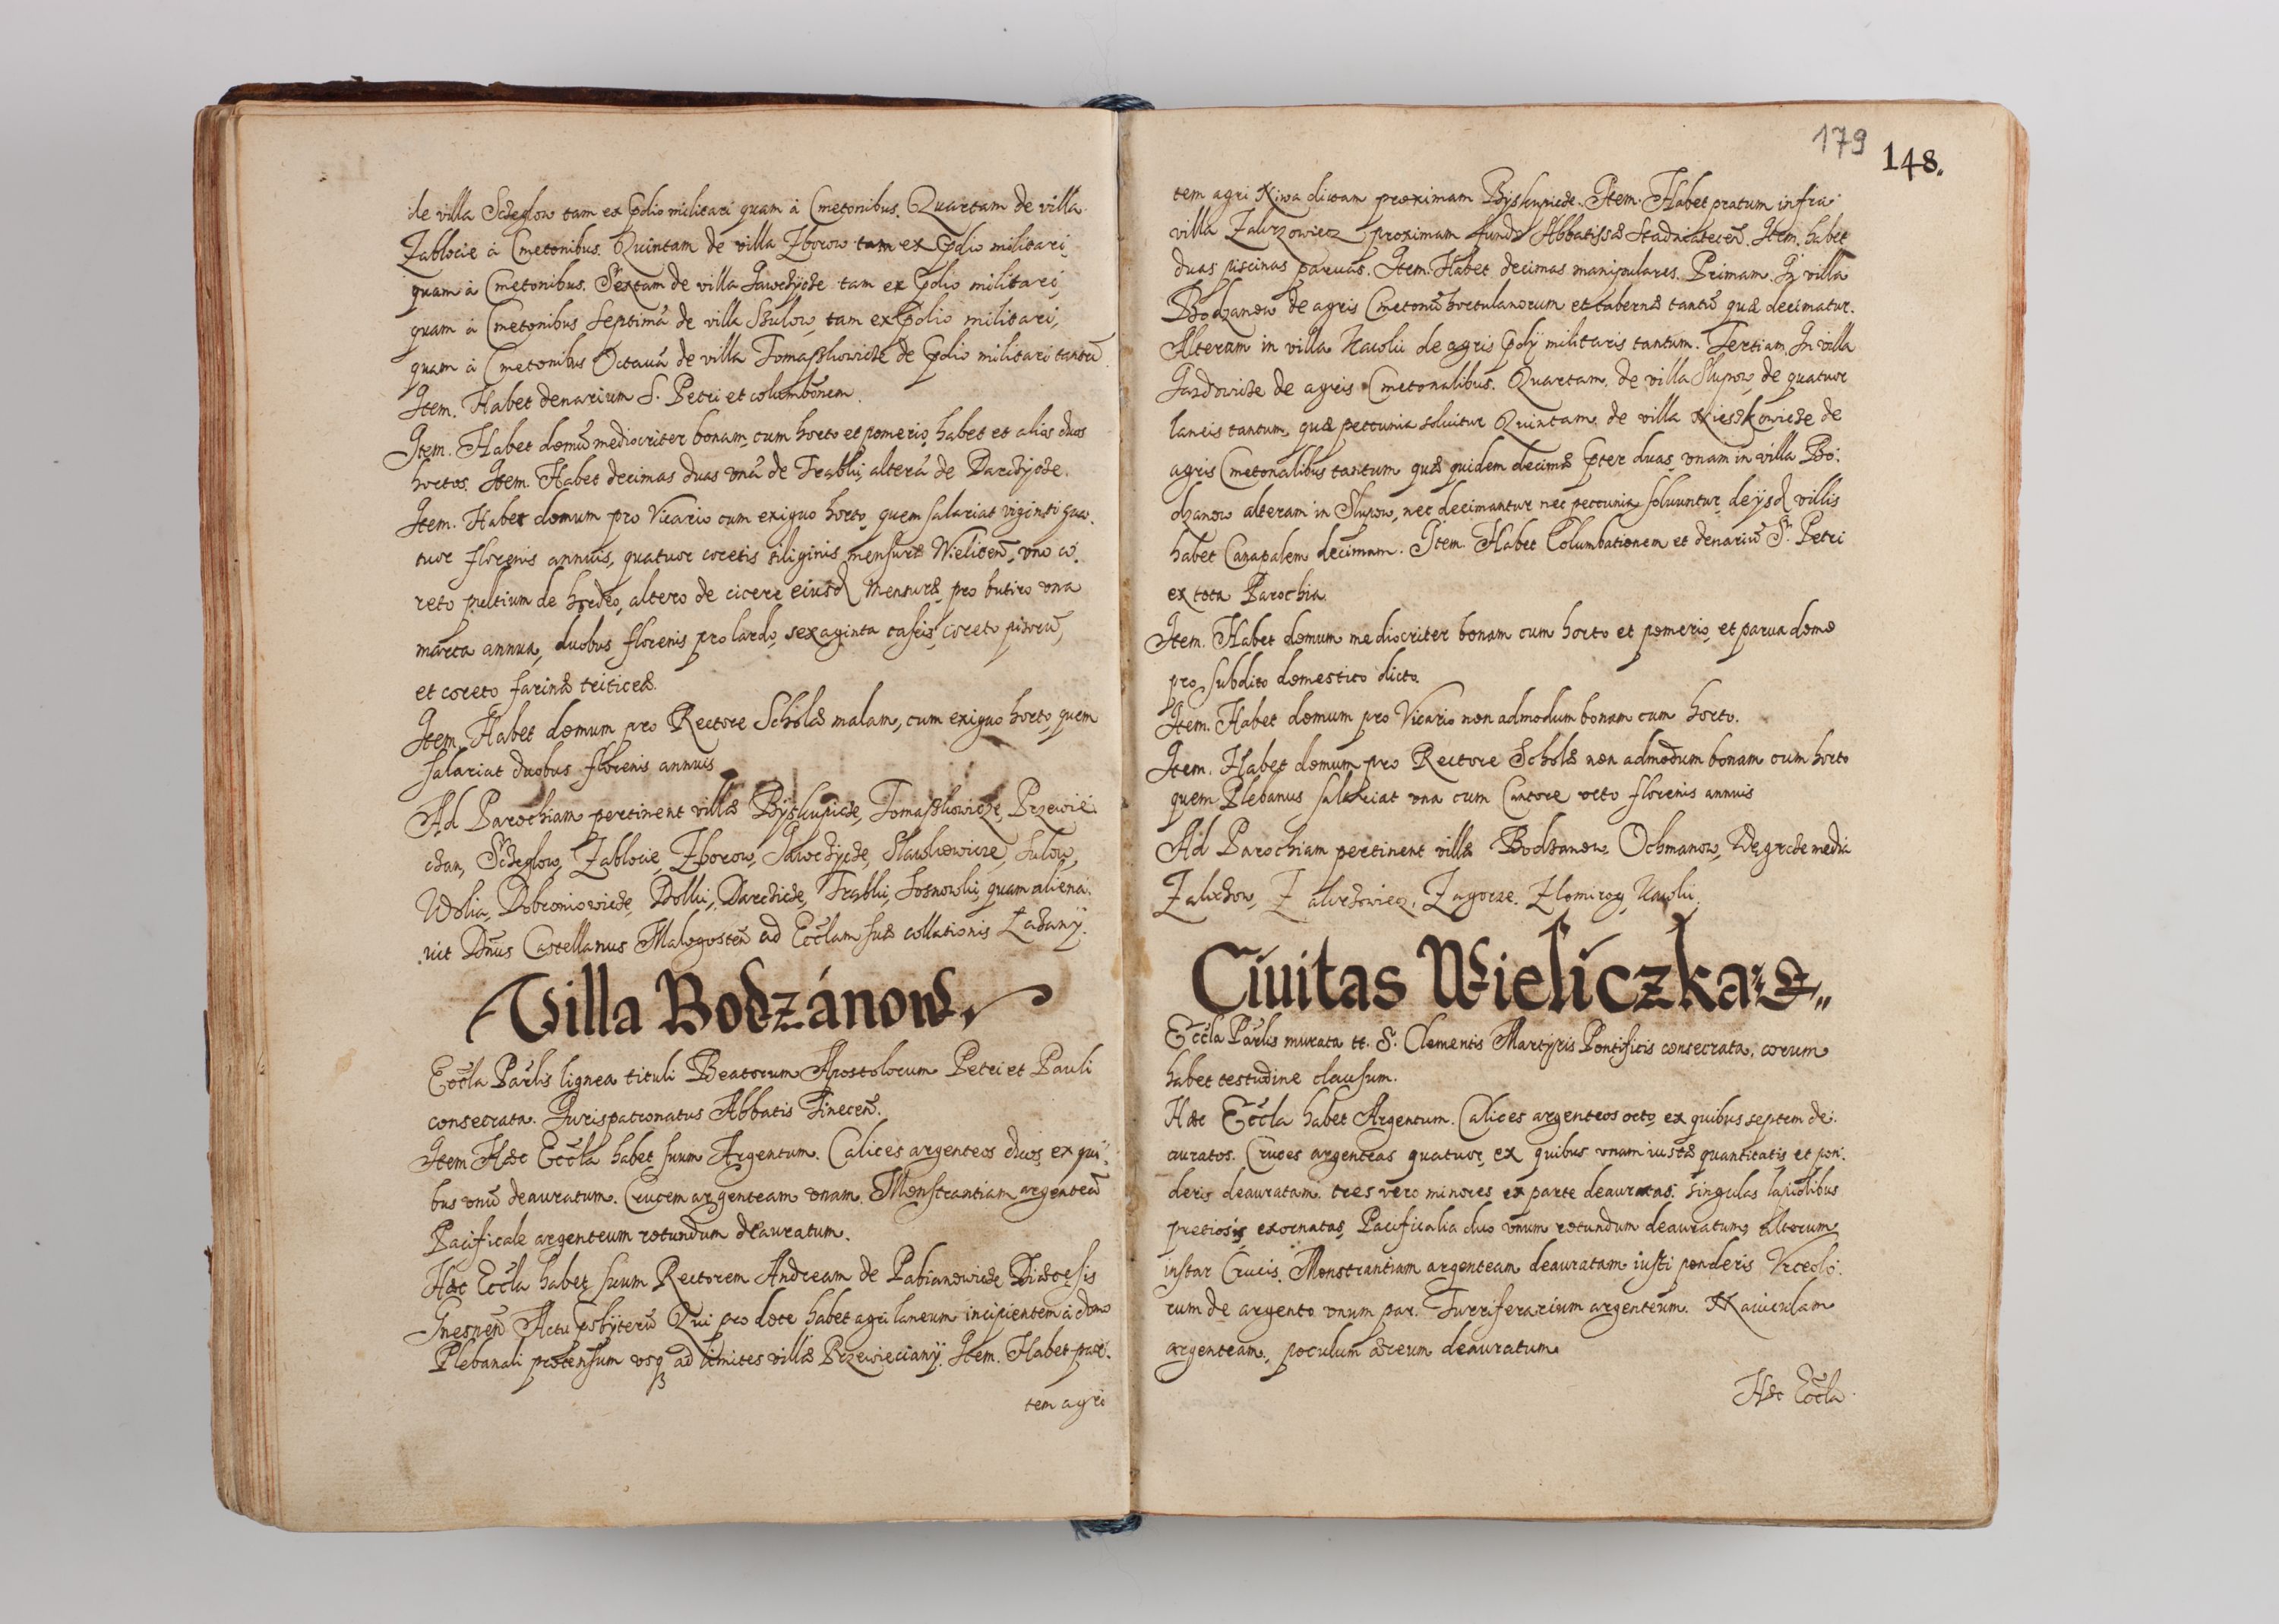 de villa Sczeglow tam ex Pdio militari quam à Cmetonibus. Quartam de villa
Zablocie à Cmetonibus. Quintam de villa Zborow tam ex Pdio militari,
quam à Cmetonibus. Sextam de villa Jawczÿcze tam ex Pdio militari,
quam à Cmetonibus Septimã de villa Sulow, tam ex Pdio militari,
quam à Cmetonibus Octauã de villa Tomaßkowicze de Pdio militari tantũ.
Item. Habet denarium S. Petri et columbõnem.
Item. Habet domũ mediocriter bonam cum horto et pomerio, habet et alios duos
hortos. Item. Habet decimas duas vnã de Trąbki, alterã de Darczÿcze.
Item. Habet domum pro Vicario cum exiguo horto, quem salariat viginti qua:
tuor florenis annuis, quatuor coretis siliginis mensuræ Wielicen̄, vno co:
reto pultium de hordeo, altero de cicere eiusd mensuræ, pro butiro vna
marca annua, duobus florenis pro lardo, sexaginta caseis, coreto pisorũ,
et coreto farinæ triticeæ.
Item. Habet domum pro Rectore Scholæ malam, cum exiguo horto, quem
salariat duobus florenis annuis
Ad Parochiam pertinent villæ Bÿskupicze, Tomaßkowicze, Przewie:
czan, Sczeglow, Zablocie, Zborow, Jawczÿcze, Slawkowicze, Sulow,
Wolia, Dobroniowicze, Dolki, Darczicze, Trąbki, Łosnowki, quam aliena:
uit Dñus Castellanus Malogosten̄ ad Eccłam suæ collationis Łazanÿ.
Villa Bodzánow.
Eccła Parłis lignea tituli Beatorum Apostolorum Petri et Pauli
consecrata. Jurispatronatus Abbatis Tinecen̄.
Item Hæc Eccła habet suum Argentum. Calices argenteos duos, ex qui:
bus vnũ deauratum. Crucem argenteam vnam. Monstrantiam argenteã
Pacificale argenteum rotundum deauratum.
Hæc Eccła habet suum Rectorem Andream de Pabianowicze Diæcesis
Gnesnen̄ Actu psbÿterũ Qui pro dote habet agri laneum incipientem à domo
Plebanali protensum vsqꝫ ad limites villæ Przewieczanÿ. Item. Habet par:
tem agri
179
148.
tem agri Niwa dictam proximam Bÿskupicze. Item. Habet pratum infra
villa Zakrzowiecz proximam fundo Abbatissæ Staniatecen̄. Item. habet
duas piscinas paruas. Item. Habet decimas manipulares. Primam. In villa
Bodzanow de agris Cmetonũ hortulanorum et tabernæ tantũ quæ decimatur.
Alteram in villa Kawki de agris Pdÿ militaris tantum. Tertiam. In villa
Jazdowicze de agris Cmetonalibus. Quartam. de villa Slupow, de quatuor
laneis tantum, quæ peccunia soluitur Quintam. de villa Mieszkowicze de
agris Cmetonalibus tantum quæ quidem decimæ Pter duas, vnam in villa Bo:
dzanow alteram in Slupow, nec decimantur nec peccunia soluuntur, de ÿsd villis
habet Canapalem decimam. Item. Habet Columbationem et denariũ S. Petri
ex tota Parochia.
Item. Habet domum mediocriter bonam cum horto et pomerio, et parua domo
pro subdito domestico dicto.
Item. Habet domum pro Vicario non admodum bonam cum horto.
Item. Habet domum pro Rectore Scholæ non admodum bonam cum horto
quem Plebanus salariat vna cum Cantore octo florenis annuis
Ad Parochiam pertinent villæ Bodzanow. Ochmanow, Węgrzce media
Zakrzow, Zakrzowiecz, Zagorze. Zlomirog, Kawki.
Ciuitas Wieliczka
Eccła Parłis murata tt. S. Clementis Martÿris Pontificis consecrata, corum
habet testudine clausum.
Hæc Eccła habet Argentum. Calices argenteos octo, ex quibus septem de:
auratos. Cruces argenteas quatuor, ex quibus vnam iustæ quantitatis et pon:
deris deauratam. tres vero minores ex parte deauratas. singulas lapidibus
pretiosis exornatas, Pacificalia duo vnum rotundum deauratum, alterum
instar Crucis. Monstrantiam argenteam deauratam iusti ponderis Vrceolo:
rum de argento vnum par. Turriferarium argenteum. Nauiculam
argenteam, poculum æreum deauratum
Hæc Eccła